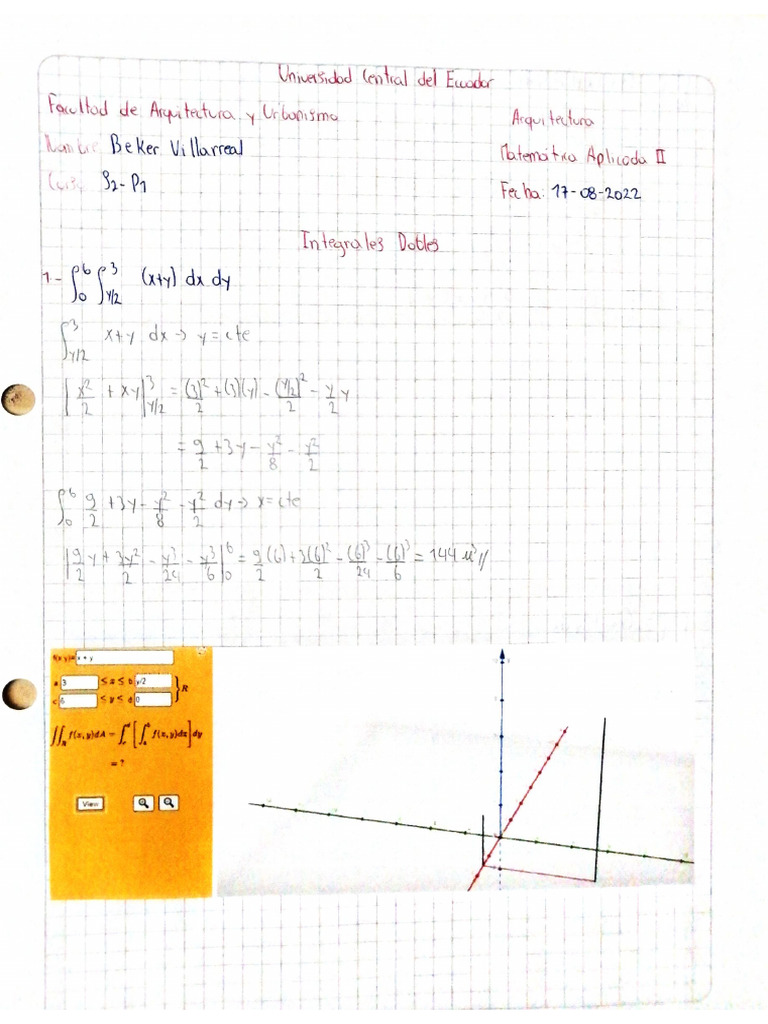 Universidad Central del Ecuador
Facultad de Arquitectura y Urbanismo
Arquitectura
Nombre: Beker Villarreal
Matemática Aplicada II
S2-P1
Fecha: 17-08-2022
Integrales Dobles
1- ∫₀⁶ ∫_{y/2}³ (x+y) dx dy
∫_{y/2}³ x+y dx → y = cte
| x²/2 + xy |_{y/2}³ = (3)²/2 + (3)(y) - (y/2)²/2 - y/2 y
= 9/2 + 3y - y²/8 - y²/2
∫₀⁶ 9/2 + 3y - y²/8 - y²/2 dy → x = cte
| 9/2 y + 3y²/2 - y³/24 - y³/6 |₀⁶ = 9/2 (6) + 3(6)²/2 - (6)³/24 - (6)³/6 = 144 u³//
f(x,y)= x + y
a 3 ≤ x ≤ b y/2
c 6 ≤ y ≤ d 0
} R
∬_R f(x,y)dA = ∫_c^d [∫_a^b f(x,y)dx] dy
= ?
View